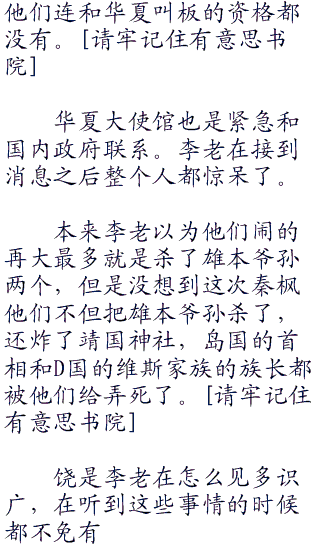 他们连和华夏叫板的资格都
没有。[请牢记住有意思书
院]
华夏大使馆也是紧急和
国内政府联系。李老在接到
消息之后整个人都惊呆了。
本来李老以为他们闹的
再大最多就是杀了雄本爷孙
两个，但是没想到这次秦枫
他们不但把雄本爷孙杀了，
还炸了靖国神社，岛国的首
相和D国的维斯家族的族长都
被他们给弄死了。[请牢记住
有意思书院]
饶是李老在怎么见多识
广，在听到这些事情的时候
都不免有